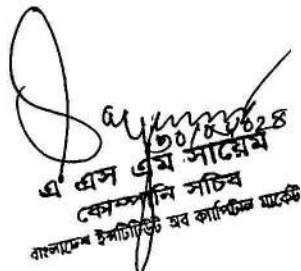 এ এস এম সায়েম
কোম্পানি সচিব
বাংলাদেশ ইন্সটিটিউট অব ক্যাপিটাল মার্কেট